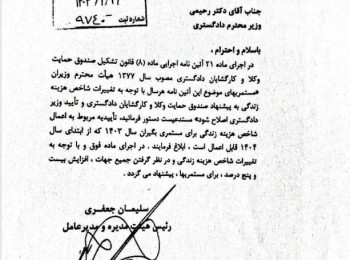 ۱۴۰۳/۱۲/۲۱
شماره ثبت ۹۷۴۰۰
جناب آقای دکتر رحیمی
وزیر محترم دادگستری
باسلام و احترام ،
در اجرای ماده ۲۱ آئین نامه اجرایی ماده (۸) قانون تشکیل صندوق حمایت
وکلا و کارگشایان دادگستری مصوب سال ۱۳۷۷ هیأت محترم وزیران
«مستمریهای موضوع این آئین نامه هرسال با توجه به تغییرات شاخص هزینه
زندگی به پیشنهاد صندوق حمایت وکلا و کارگشایان دادگستری و تأیید وزیر
دادگستری اصلاح شود» مستدعیست دستور فرمائید، تأییدیه مربوط به اعمال
شاخص هزینه زندگی برای مستمری بگیران سال ۱۴۰۳ که از ابتدای سال
۱۴۰۴ قابل اعمال است ، ابلاغ فرمایند . در اجرای ماده فوق و با توجه به
تغییرات شاخص هزینه زندگی و در نظر گرفتن جمیع جهات ، افزایش بیست
و پنج درصد ، برای مستمریها ، پیشنهاد می گردد .
سلیمان جعفری
رئیس هیئت مدیره و مدیرعامل